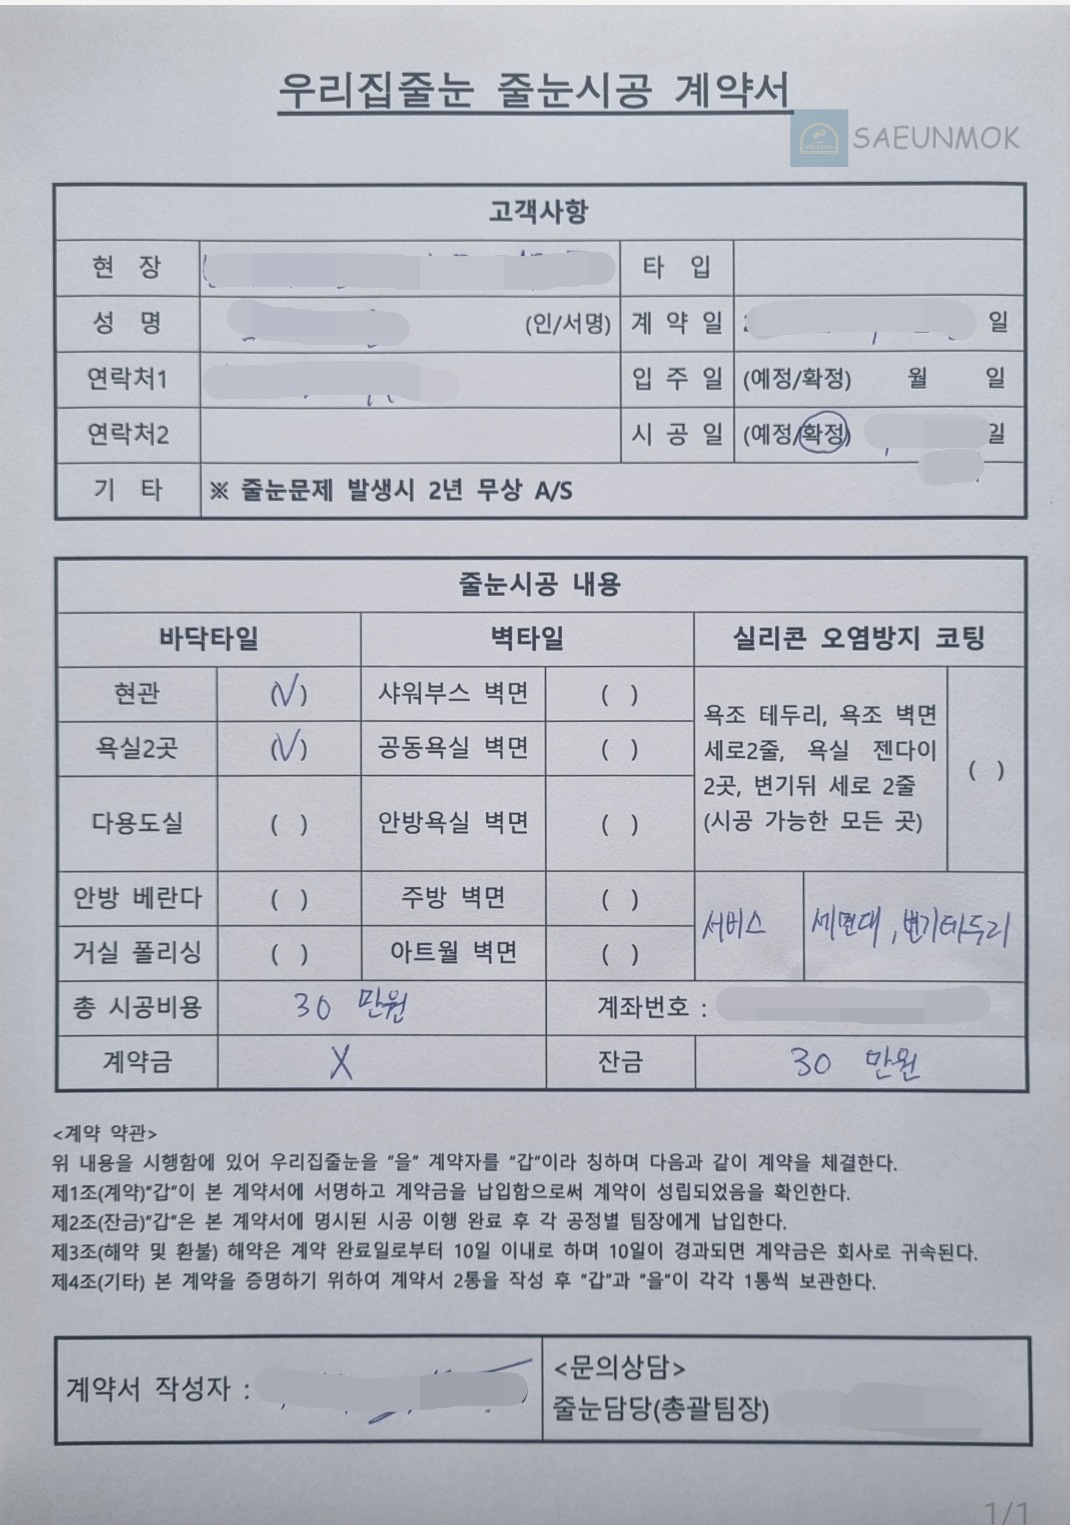 우리집줄눈 줄눈시공 계약서
SAEUNMOK
고객사항
현 장 타 입
성 명 (인/서명) 계 약 일 일
연락처1 입 주 일 (예정/확정) 월 일
연락처2 시 공 일 (예정/확정) 일
기 타 ※ 줄눈문제 발생시 2년 무상 A/S
줄눈시공 내용
바닥타일 벽타일 실리콘 오염방지 코팅
현관 (√) 샤워부스 벽면 ( )
욕실2곳 (√) 공동욕실 벽면 ( )
다용도실 ( ) 안방욕실 벽면 ( )
욕조 테두리, 욕조 벽면
세로2줄, 욕실 젠다이
2곳, 변기뒤 세로 2줄
(시공 가능한 모든 곳)
( )
안방 베란다 ( ) 주방 벽면 ( )
거실 폴리싱 ( ) 아트월 벽면 ( )
서비스 세면대, 변기테두리
총 시공비용 30 만원 계좌번호 :
계약금 X 잔금 30 만원
<계약 약관>
위 내용을 시행함에 있어 우리집줄눈을 "을" 계약자를 "갑"이라 칭하며 다음과 같이 계약을 체결한다.
제1조(계약)"갑"이 본 계약서에 서명하고 계약금을 납입함으로써 계약이 성립되었음을 확인한다.
제2조(잔금)"갑"은 본 계약서에 명시된 시공 이행 완료 후 각 공정별 팀장에게 납입한다.
제3조(해약 및 환불) 해약은 계약 완료일로부터 10일 이내로 하며 10일이 경과되면 계약금은 회사로 귀속된다.
제4조(기타) 본 계약을 증명하기 위하여 계약서 2통을 작성 후 "갑"과 "을"이 각각 1통씩 보관한다.
계약서 작성자 :
<문의상담>
줄눈담당(총괄팀장)
1/1